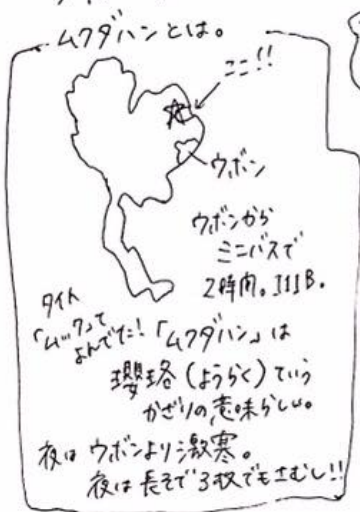 ムクダハンとは。
ここ!!
ウボン
ウボンから
ミニバスで
2時間。111B。
タイ人
「ムック」って
よんでた!「ムクダハン」は
瓔珞(ようらく)ていう
かざりの意味らしい。
夜はウボンより激寒。
夜は長そで3枚でもさむし!!